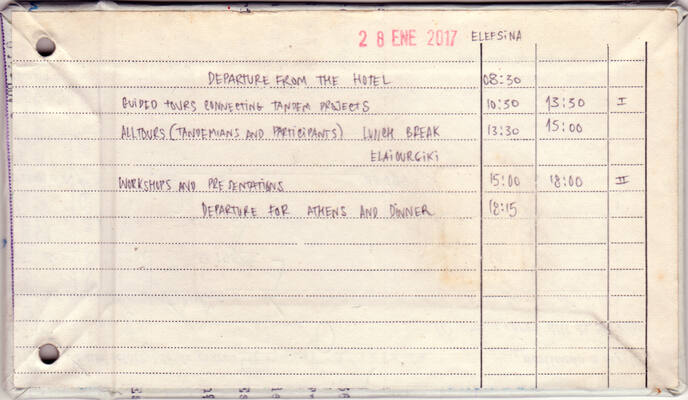 28 ENE 2017 ELEFSINA
DEPARTURE FROM THE HOTEL 08:30
GUIDED TOURS CONNECTING TANDEM PROJECTS 10:30 13:30 I
ALL TOURS (TANDEMIANS AND PARTICIPANTS) LUNCH BREAK 13:30 15:00
ELAIOURGIKI
WORKSHOPS AND PRESENTATIONS 15:00 18:00 II
DEPARTURE FOR ATHENS AND DINNER 18:15